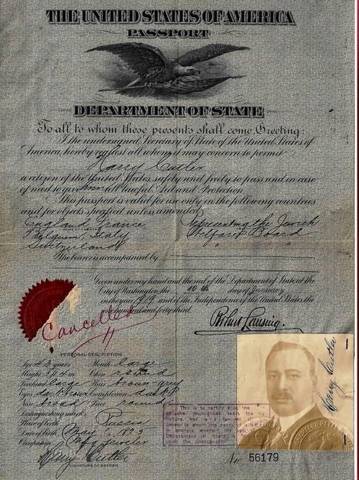 THE UNITED STATES OF AMERICA
PASSPORT
DEPARTMENT OF STATE
To all to whom these presents shall come, Greeting:
I the undersigned, Secretary of State of the United States of
America, hereby request all whom it may concern to permit
Harry Cutler
a citizen of the United States safely and freely to pass and in case
of need to give him all lawful Aid and Protection
This passport is valid for use only in the following countries
and for objects specified unless amended
England France Representing the Jewish
Belgium Italy Welfare Board
Switzerland
The bearer is accompanied by
Given under my hand and the seal of the Department of State at the
City of Washington, the 10th day of January
in the year 1919 and of the Independence of the United States the
Robert Lansing
Cancelled
PERSONAL DESCRIPTION
Age years Mouth large
Height Chin round
Forehead large Hair
Eyes Complexion
Nose Face round
Distinguishing marks
Place of birth Russia
Date of birth
Occupation Mfg jeweler
Harry Cutler
SIGNATURE OF BEARER
This is to certify that the
Harry Cutler
No 56179